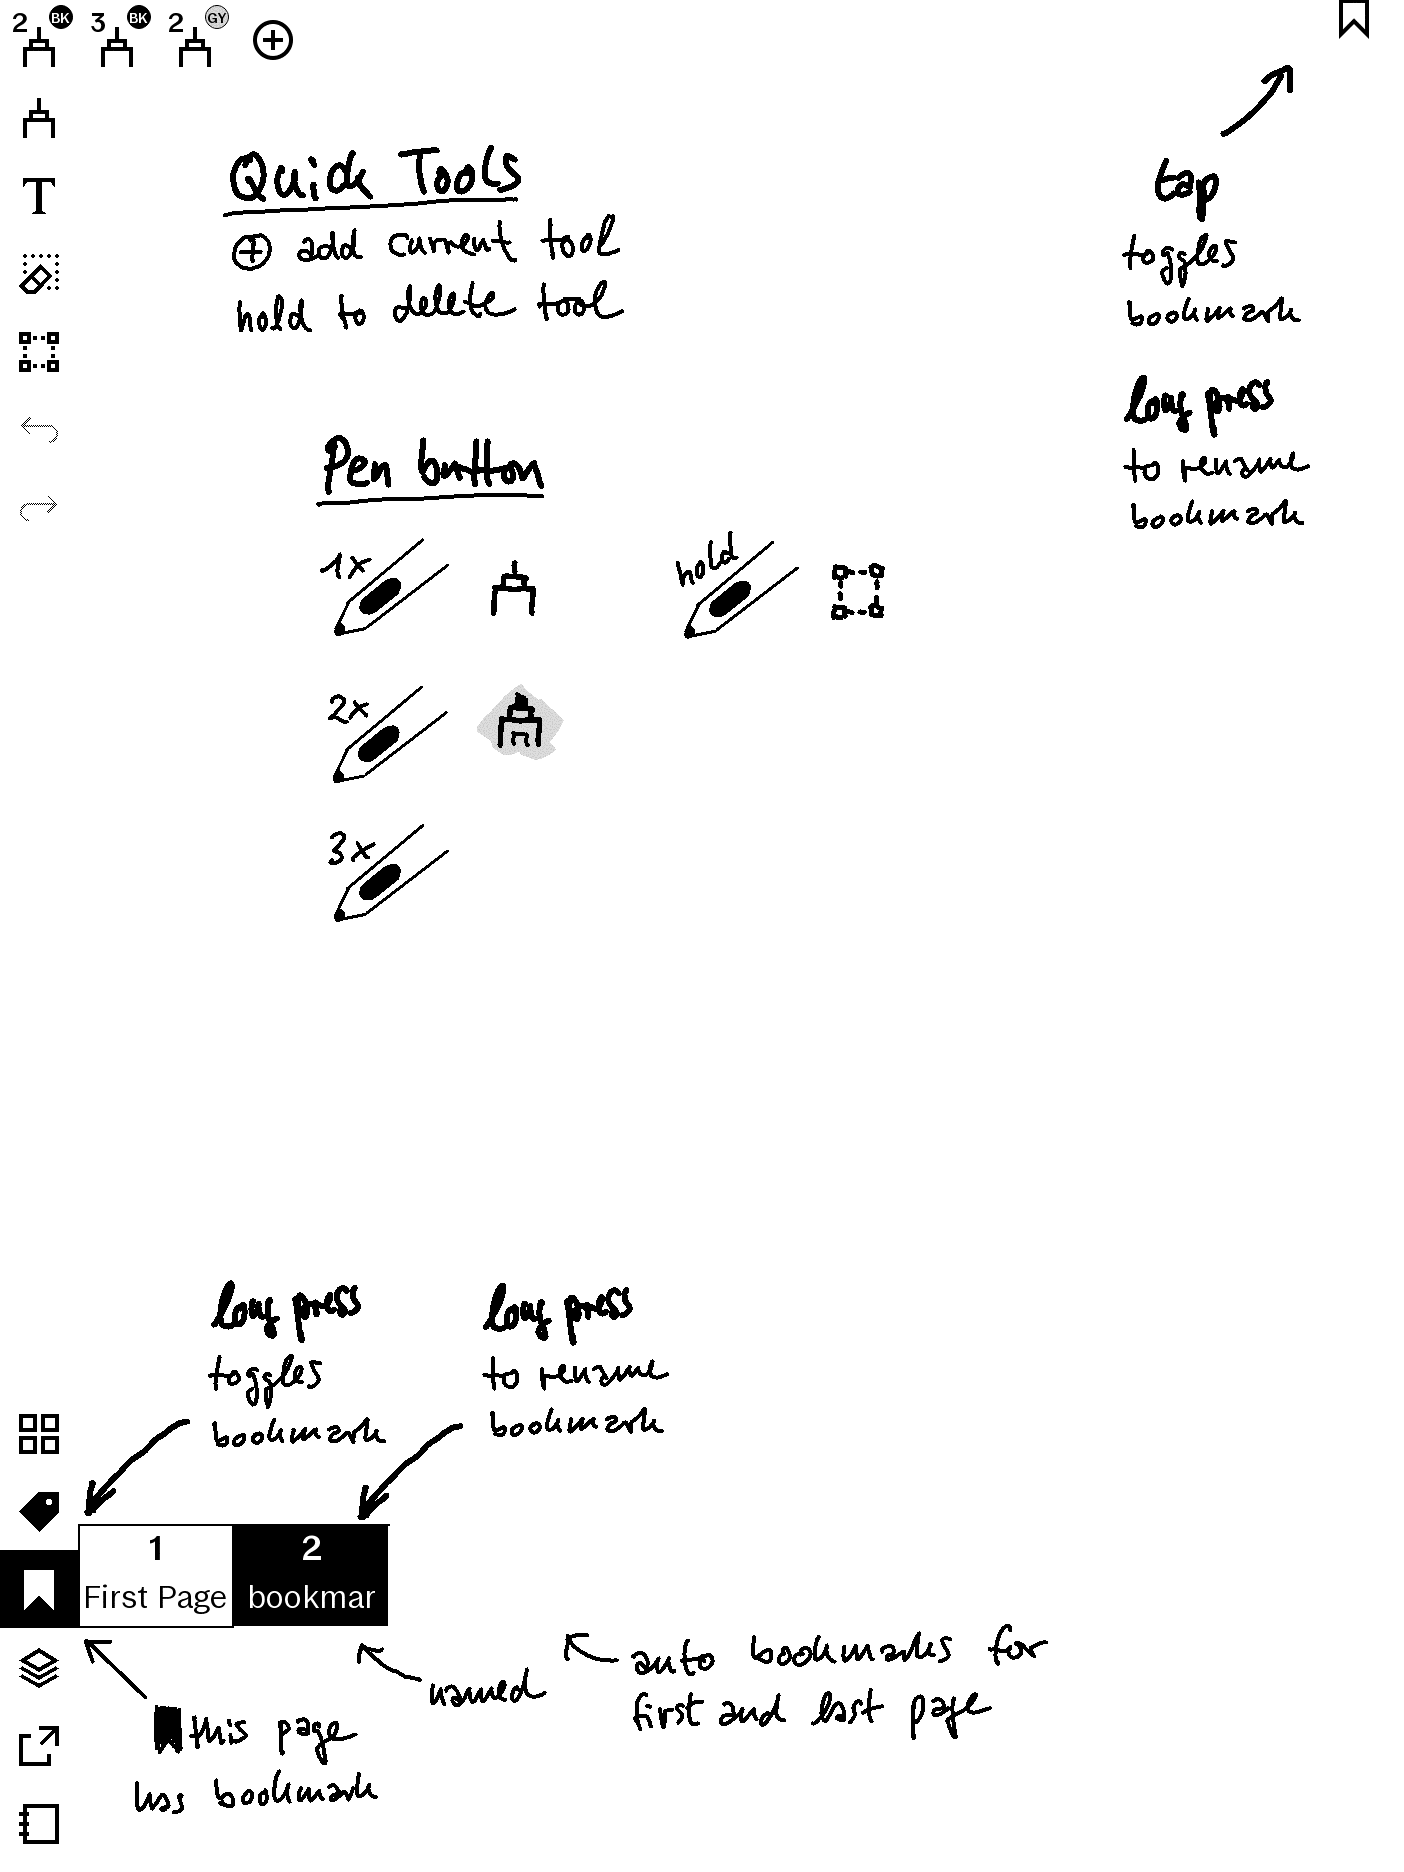 2 BK 3 BK 2 GY
T
Quick Tools
⊕ add current tool
hold to delete tool
tap
toggles
bookmark
long press
to rename
bookmark
Pen button
1x
hold
2x
3x
long press
toggles
bookmark
long press
to rename
bookmark
1
First Page
2
bookmar
named
auto bookmarks for
first and last page
this page
has bookmark